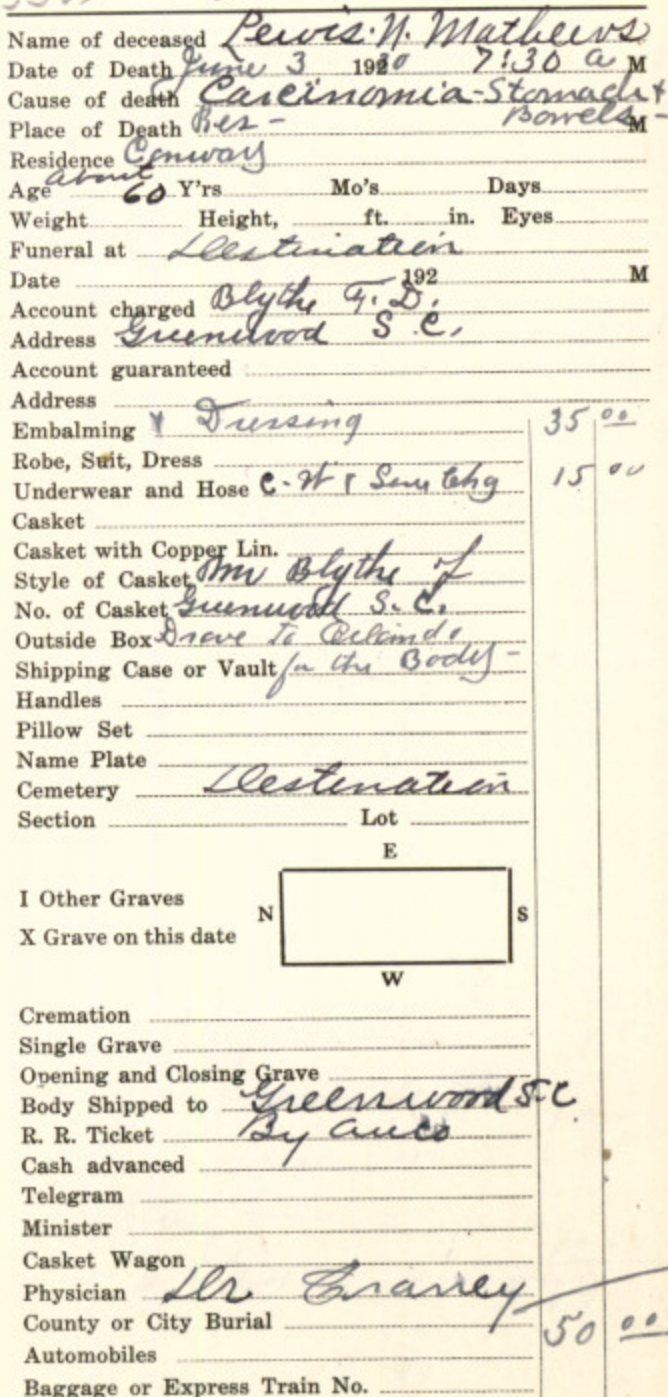 Name of deceased Lewis. N. Mathews
Date of Death June 3 1920 7:30 a M
Cause of death Carcinomia-Stomach &
Bowels-
Place of Death Res - M
Residence Conway
Age about 60 Y'rs Mo's Days
Weight Height, ft. in. Eyes
Funeral at Destination
Date 192 M
Account charged Blythe F. D.
Address Greenwood S. C.
Account guaranteed
Address
Embalming & Dressing 35 00
Robe, Suit, Dress
Underwear and Hose C-W & Serv Chg 15 00
Casket
Casket with Copper Lin.
Style of Casket Mr Blythe of
No. of Casket Greenwood S. C.
Outside Box Drove to Orlando
Shipping Case or Vault for the Body-
Handles
Pillow Set
Name Plate
Cemetery Destination
Section Lot
E
I Other Graves
N S
X Grave on this date
W
Cremation
Single Grave
Opening and Closing Grave
Body Shipped to Greenwood S.C
R. R. Ticket By auto
Cash advanced
Telegram
Minister
Casket Wagon
Physician Dr
County or City Burial 50 00
Automobiles
Baggage or Express Train No.